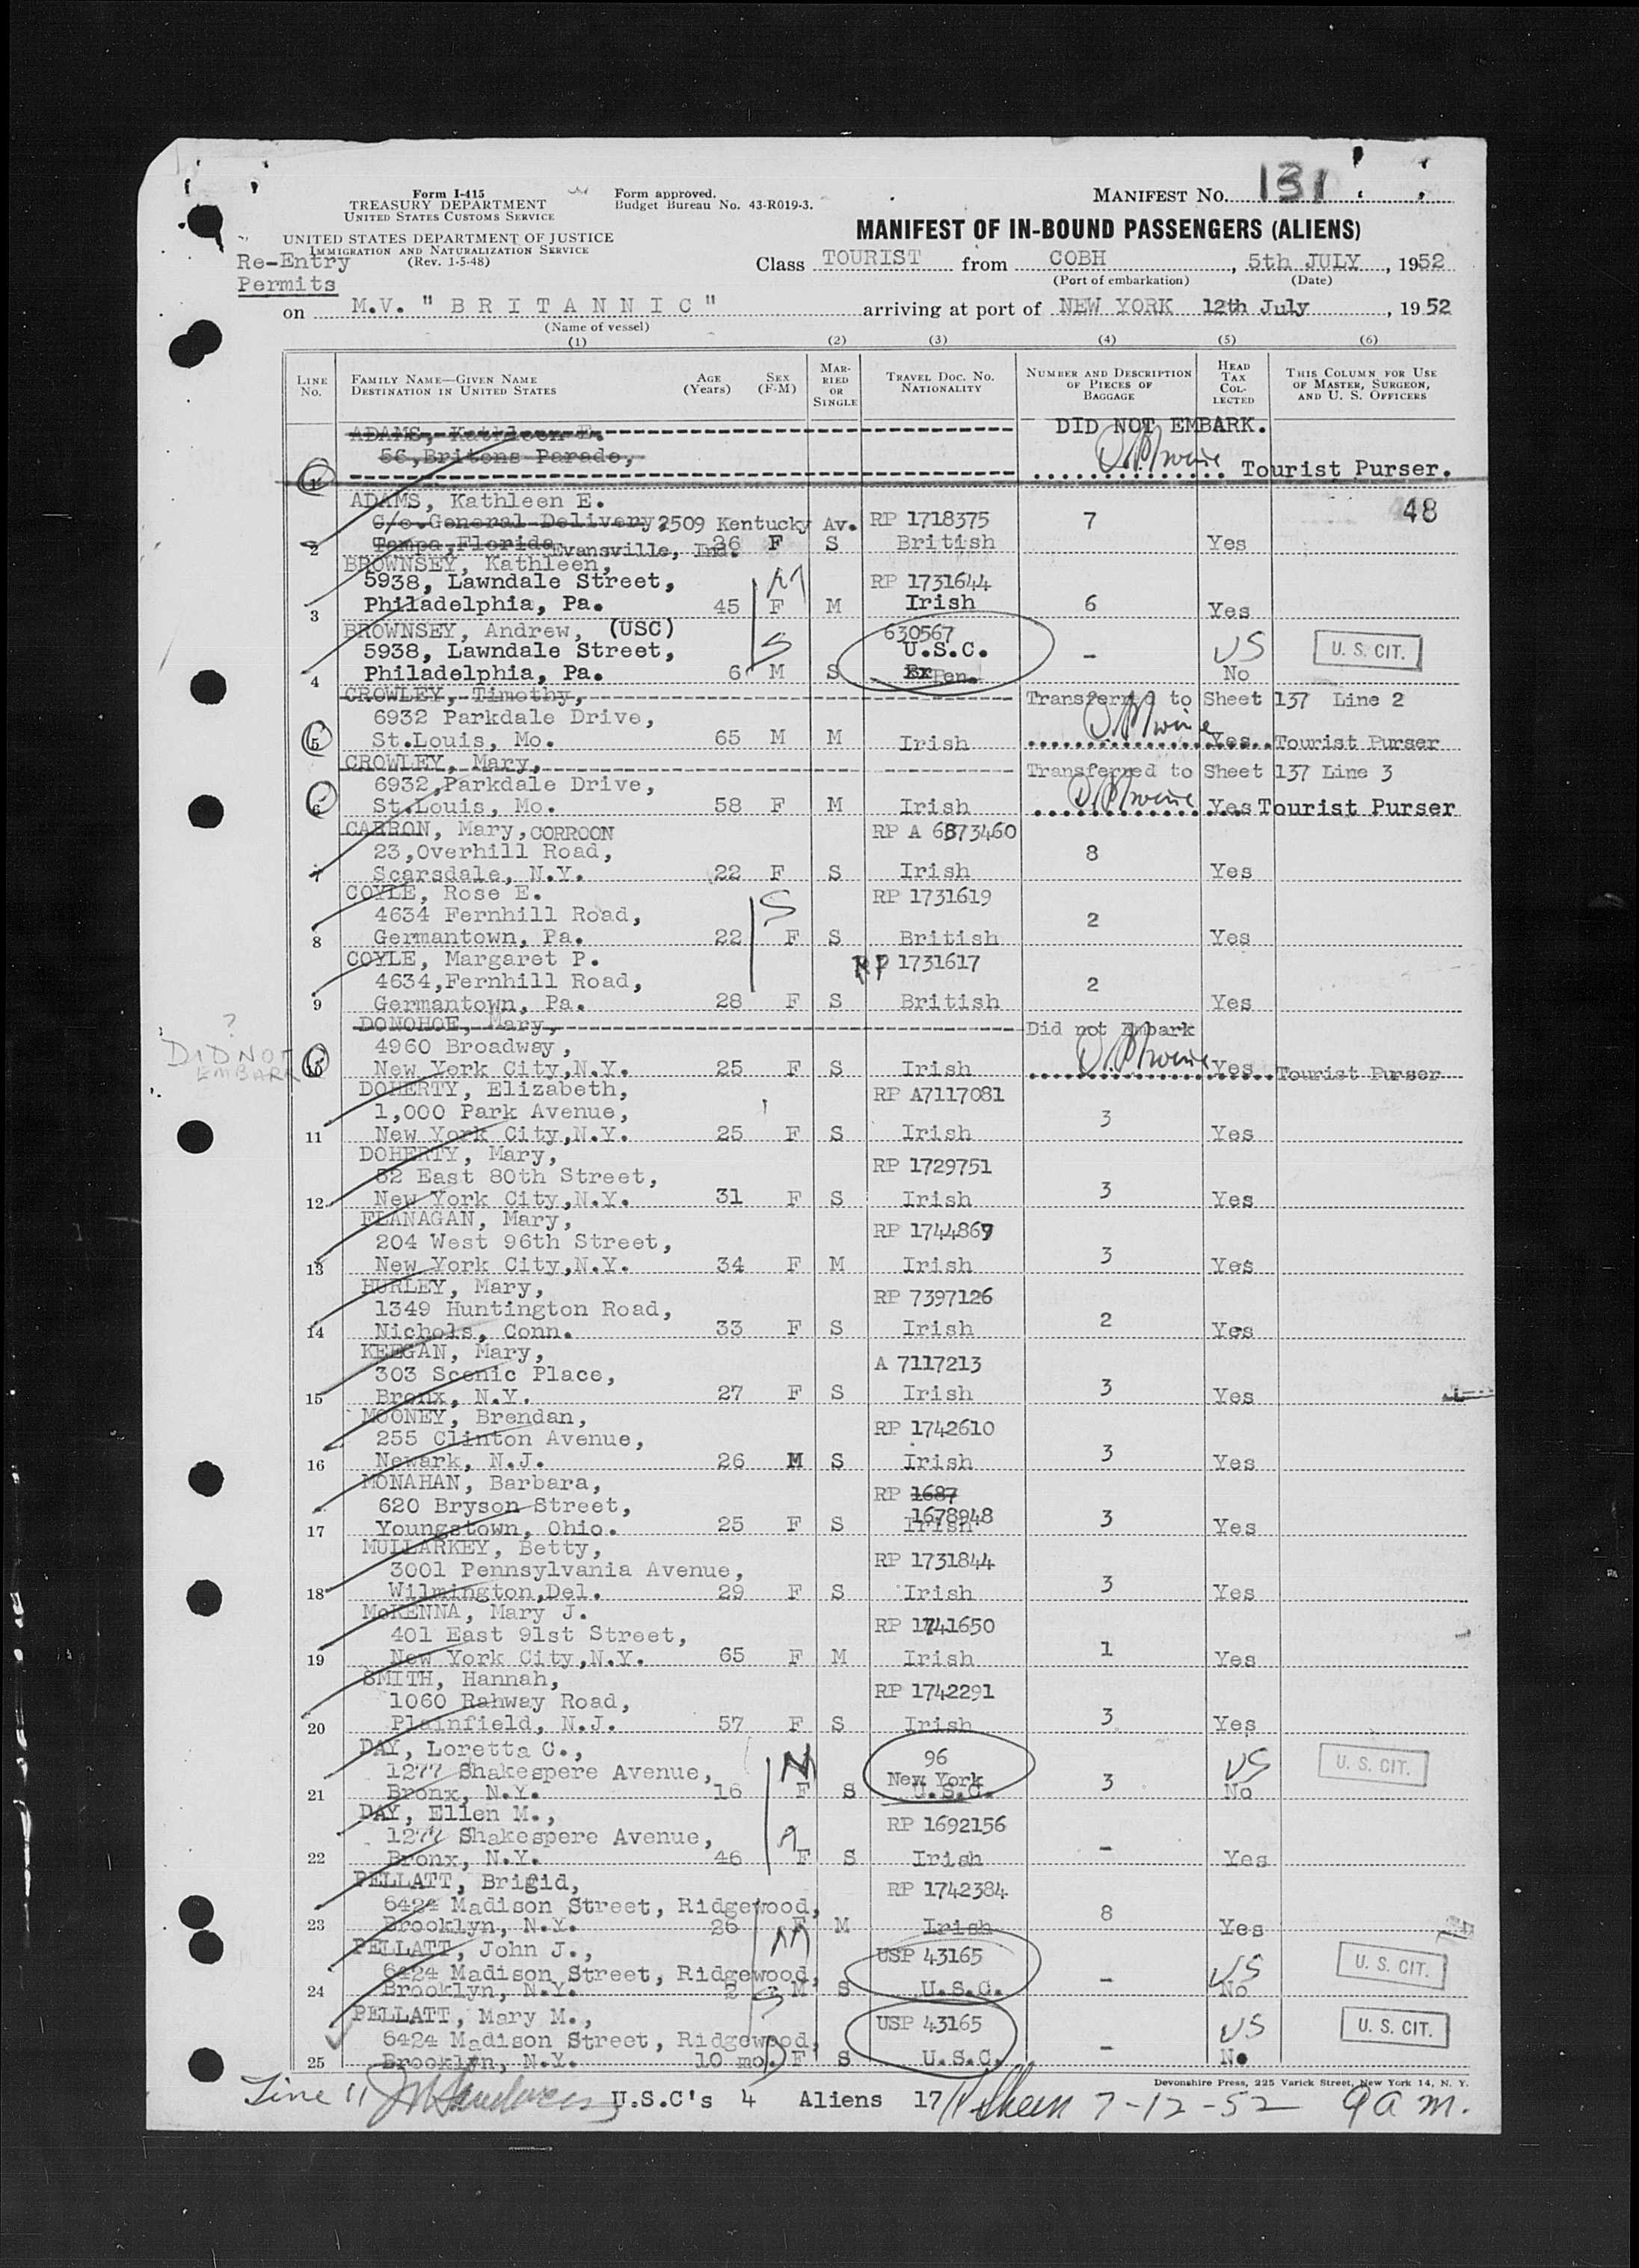 Form I-415
TREASURY DEPARTMENT
UNITED STATES CUSTOMS SERVICE
UNITED STATES DEPARTMENT OF JUSTICE
IMMIGRATION AND NATURALIZATION SERVICE
(Rev. 1-5-48)
Re-Entry
Permits
Form approved.
Budget Bureau No. 43-R019-3.
MANIFEST NO. 131
MANIFEST OF IN-BOUND PASSENGERS (ALIENS)
Class TOURIST from COBH, 5th JULY, 1952
(Port of embarkation) (Date)
on M.V. "BRITANNIC" arriving at port of NEW YORK 12th July, 1952
(Name of vessel)
(1) (2) (3) (4) (5) (6)
LINE NO. FAMILY NAME—GIVEN NAME DESTINATION IN UNITED STATES AGE (Years) SEX (F-M) MARRIED OR SINGLE TRAVEL DOC. NO. NATIONALITY NUMBER AND DESCRIPTION OF PIECES OF BAGGAGE HEAD TAX COLLECTED THIS COLUMN FOR USE OF MASTER, SURGEON, AND U. S. OFFICERS
ADAMS, Kathleen E. DID NOT EMBARK.
56, Britons Parade,
1 Tourist Purser.
ADAMS, Kathleen E. 48
C/o General Delivery, 2509 Kentucky Av. RP 1718375 7
2 Tampa, Florida Evansville, Ind. 26 F S British Yes
BROWNSEY, Kathleen,
5938, Lawndale Street, RP 1731644
3 Philadelphia, Pa. 45 F M Irish 6 Yes
BROWNSEY, Andrew, (USC) 630567
5938, Lawndale Street, U.S.C. - US U. S. CIT.
4 Philadelphia, Pa. 6 M S Pen. No
CROWLEY, Timothy, Transferred to Sheet 137 Line 2
6932 Parkdale Drive,
5 St.Louis, Mo. 65 M M Irish Yes Tourist Purser
CROWLEY, Mary, Transferred to Sheet 137 Line 3
6932, Parkdale Drive,
6 St.Louis, Mo. 58 F M Irish Yes Tourist Purser
CARRON, Mary, CORROON RP A 6873460
23, Overhill Road, 8
7 Scarsdale, N.Y. 22 F S Irish Yes
COYLE, Rose E. RP 1731619
4634 Fernhill Road, S 2
8 Germantown, Pa. 22 F S British Yes
COYLE, Margaret P. RP 1731617
4634, Fernhill Road, 2
9 Germantown, Pa. 28 F S British Yes
?
DID NOT
EMBARK
DONOHOE, Mary, Did not Embark
4960 Broadway,
10 New York City, N.Y. 25 F S Irish Yes Tourist Purser
DOHERTY, Elizabeth, RP A7117081
1,000 Park Avenue, 3
11 New York City, N.Y. 25 F S Irish Yes
DOHERTY, Mary, RP 1729751
52 East 80th Street, 3
12 New York City, N.Y. 31 F S Irish Yes
FLANAGAN, Mary, RP 1744869
204 West 96th Street, 3
13 New York City, N.Y. 34 F M Irish Yes
HURLEY, Mary, RP 7397126
1349 Huntington Road, 2
14 Nichols, Conn. 33 F S Irish Yes
KEEGAN, Mary, A 7117213
303 Scenic Place, 3
15 Bronx, N.Y. 27 F S Irish Yes
MOONEY, Brendan, RP 1742610
255 Clinton Avenue, 3
16 Newark, N.J. 26 M S Irish Yes
MONAHAN, Barbara, RP 1687
620 Bryson Street, 1678948 3
17 Youngstown, Ohio. 25 F S Irish Yes
MULLARKEY, Betty, RP 1731844
3001 Pennsylvania Avenue, 3
18 Wilmington, Del. 29 F S Irish Yes
McKENNA, Mary J. RP 1741650
401 East 91st Street, 1
19 New York City, N.Y. 65 F M Irish Yes
SMITH, Hannah, RP 1742291
1060 Rahway Road, 3
20 Plainfield, N.J. 57 F S Irish Yes
DAY, Loretta C., 96
1277 Shakespere Avenue, New York 3 US U. S. CIT.
21 Bronx, N.Y. 16 F S U.S.C. No
DAY, Ellen M., RP 1692156
1277 Shakespere Avenue, -
22 Bronx, N.Y. 46 F S Irish Yes
PELLATT, Brigid, RP 1742384
6424 Madison Street, Ridgewood, 8
23 Brooklyn, N.Y. 26 F M Irish Yes
PELLATT, John J., USP 43165
6424 Madison Street, Ridgewood, - US U. S. CIT.
24 Brooklyn, N.Y. 2 M S U.S.C. No
PELLATT, Mary M., USP 43165
6424 Madison Street, Ridgewood, - US U. S. CIT.
25 Brooklyn, N.Y. 10 mo. F S U.S.C. No
Devonshire Press, 225 Varick Street, New York 14, N. Y.
Line 11 U.S.C's 4 Aliens 17 7-12-52 9 a m.